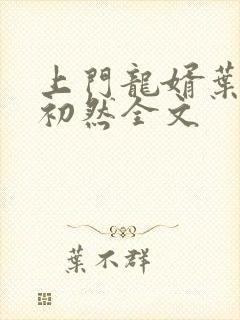 上門龍婿葉
初然全文
葉不群